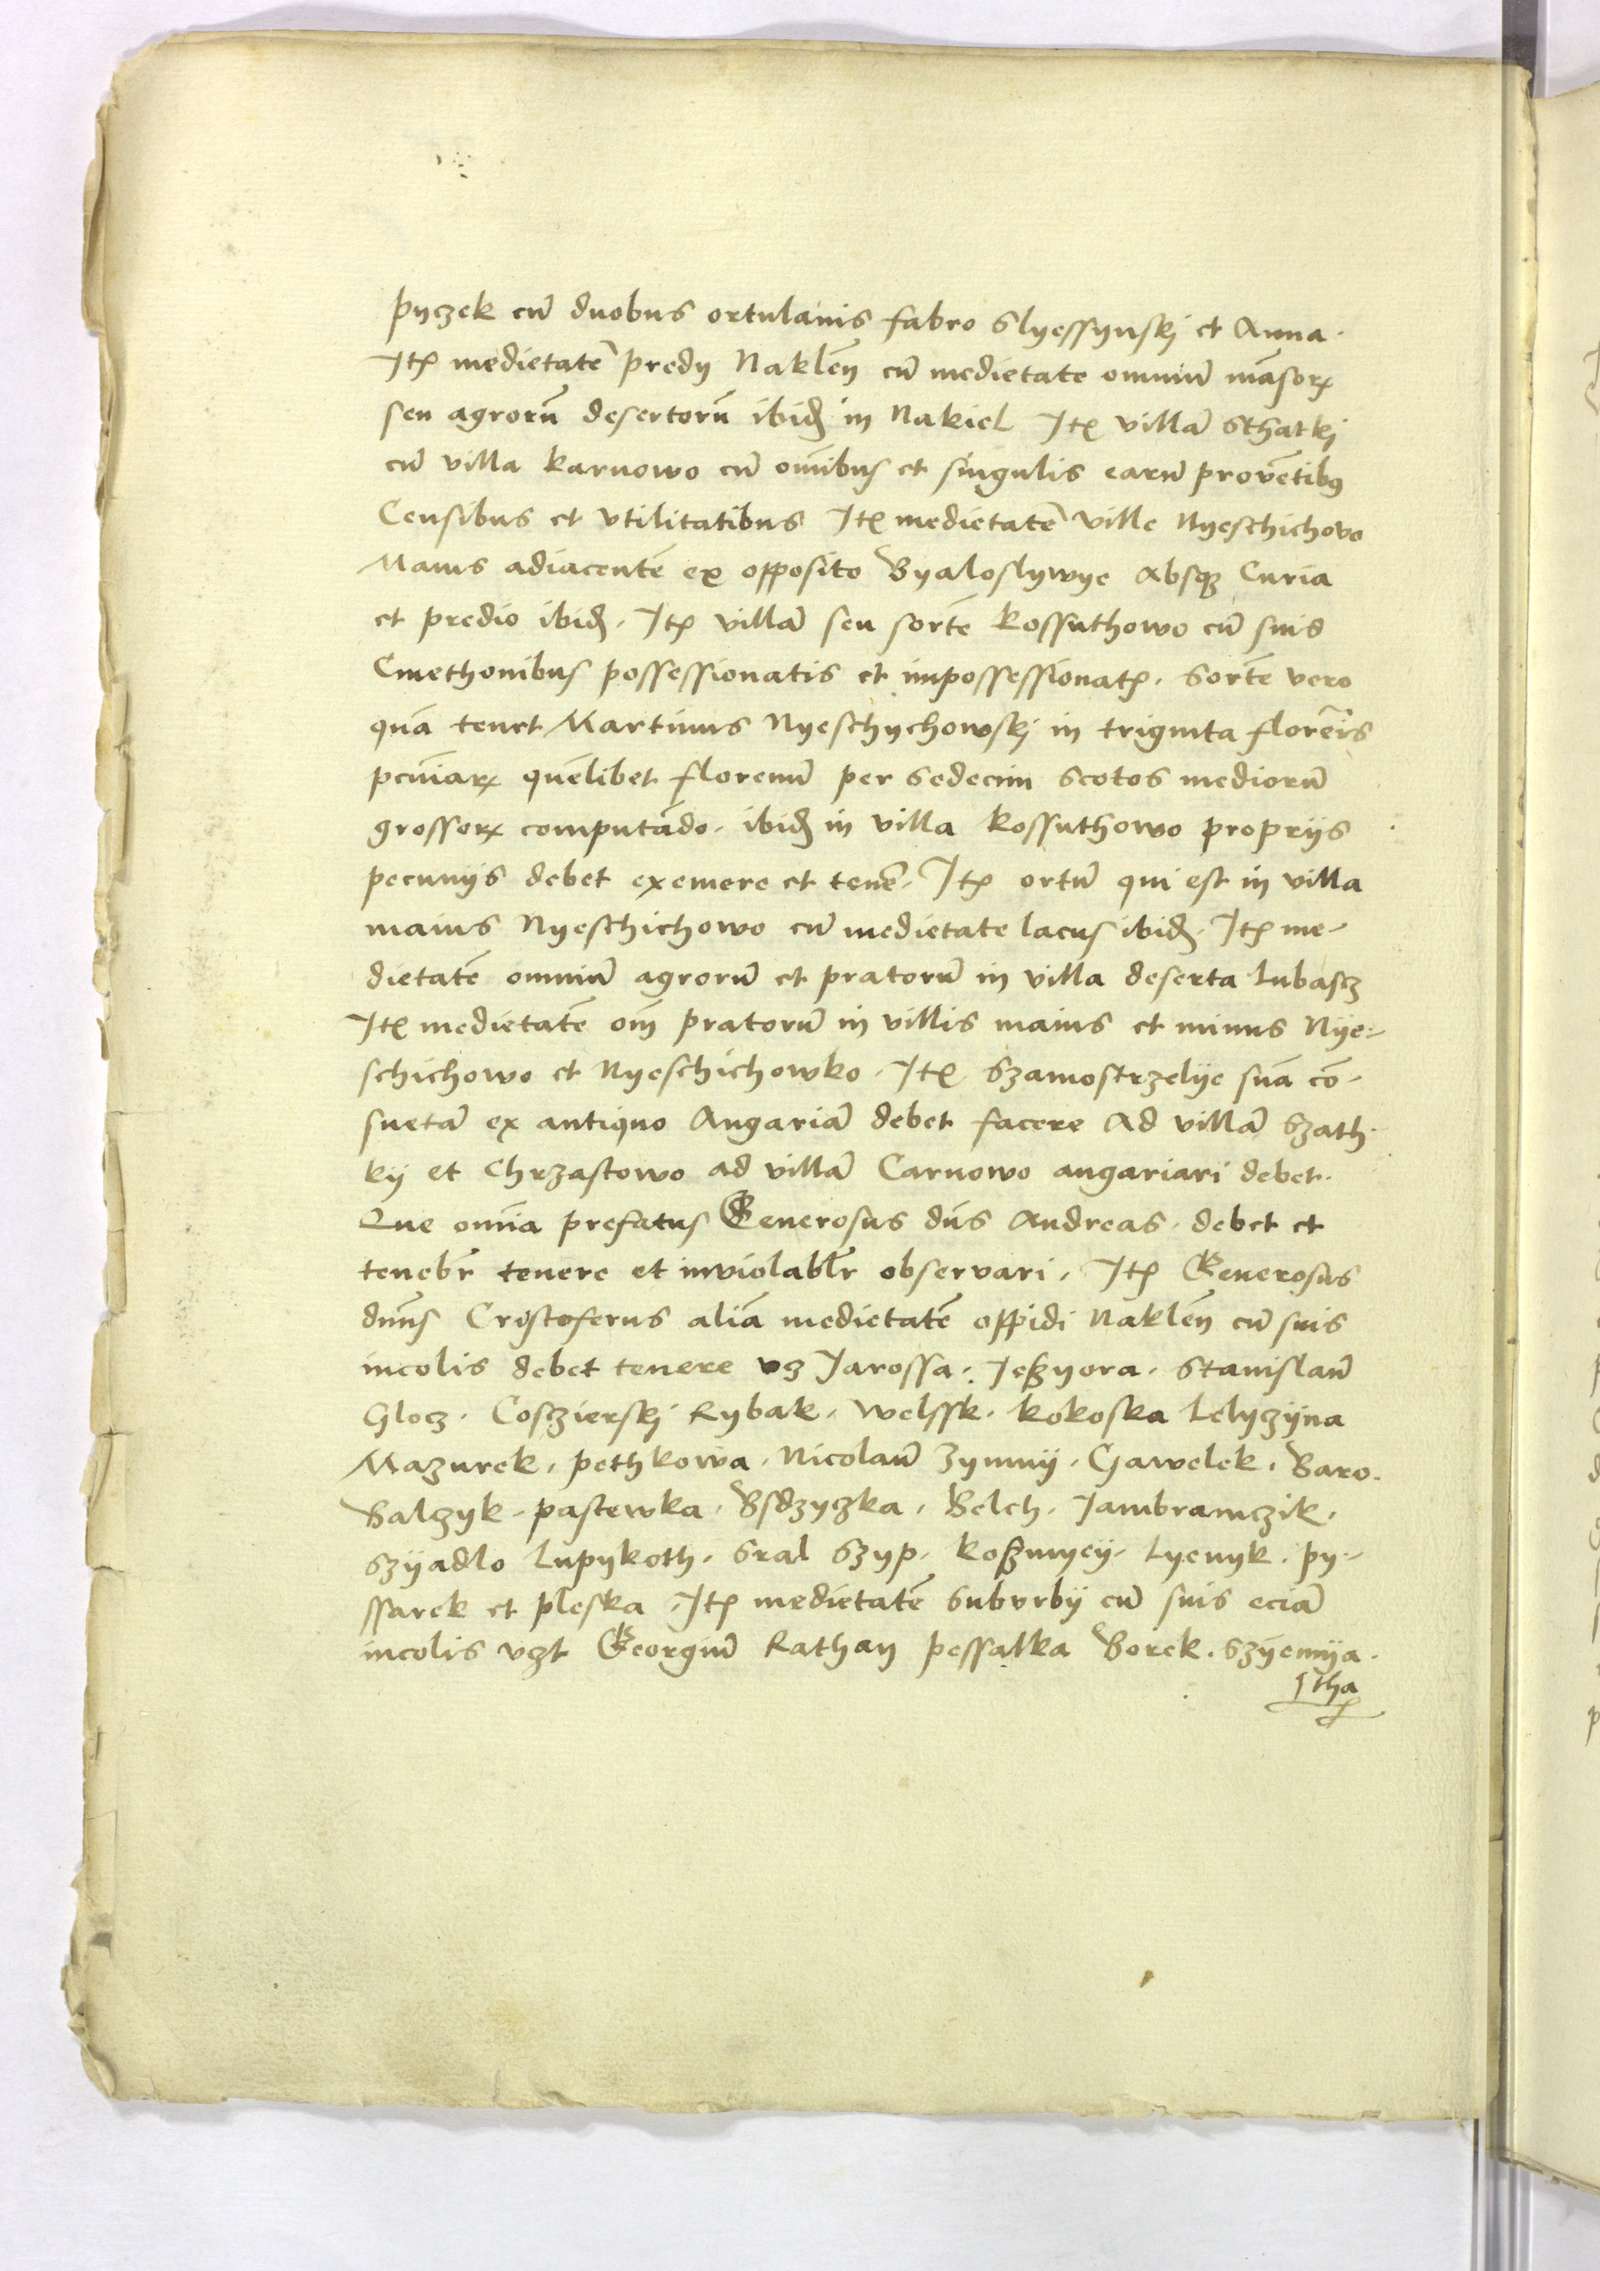 pyczek cū duobus ortulanis fabro Slyessynskj et Anna.
Itꝫ medietatē predij Naklēn cū medietate omniū māsorꝝ
seu agrorū desertorū ibidꝫ in Nakiel Itꝫ villā Sthatkj
cū villa karnowo cū om̄ibus et singulis earū provētibꝰ
Censibus et vtilitatibus Itꝫ medietatē ville Nyeschichovo
Maius adiacentē ex opposito Byaloslywye Absqꝫ Curia
et predio ibidꝫ. Itꝫ villā seu sortē kossuthowo cū suis
Cmethonibus possessionatis et impossessionatꝫ. Sortē vero
quā tenet Martinus Nyeschychowskj in triginta florēis
pecūiarꝝ quēlibet florenū per sedecim scotos mediorū
grossorꝝ computādo. ibidꝫ in villa kossuthowo proprijs
pecunijs debet exemere et tenē. Itꝫ ortū qui est in villa
maius Nyeschichowo cū medietate lacus ibidꝫ. Itꝫ me-
dietatē omniū agrorū et pratorū in villa deserta Lubascz
Itꝫ medietatē om̄ pratorū in villis maius et minus Nye-
schichowo et Nyeschichowko. Itꝫ Szamostrzelye suā cō-
suetā ex antiquo Angariā debet facere Ad villā Szath-
ky et Chrzastowo ad villā Carnowo angariari debet.
Que om̄ia prefatus Generosus dn̄s Andreas. debet et
tenebr̄ tenere et inviolablr̄ observari. Itꝫ Generosus
dn̄us Cristoferus aliā medietatē oppidi Naklēn cū suis
incolis debet tenere vꝫ Jarossa. Jeszyora. Stanislaū
Glocz. Cosczierskj Rybak. Welssk. kokoska Lelyczyna
Mazurek. pethkowa. Nicolaū Zymny. Gawelek. Baro.
Balczyk. pastewka. Bsdzyczka. Belch. Jambramczik.
Szyadlo Lupykoth. Sral Szyp. koszmyey. Lyenyk. py-
ssarek et pleska. Itꝫ medietatē Subvrbij cū suis eciā
incolis vꝫt Georgiū Rathay pessalka Borek. Szyemya.
stha